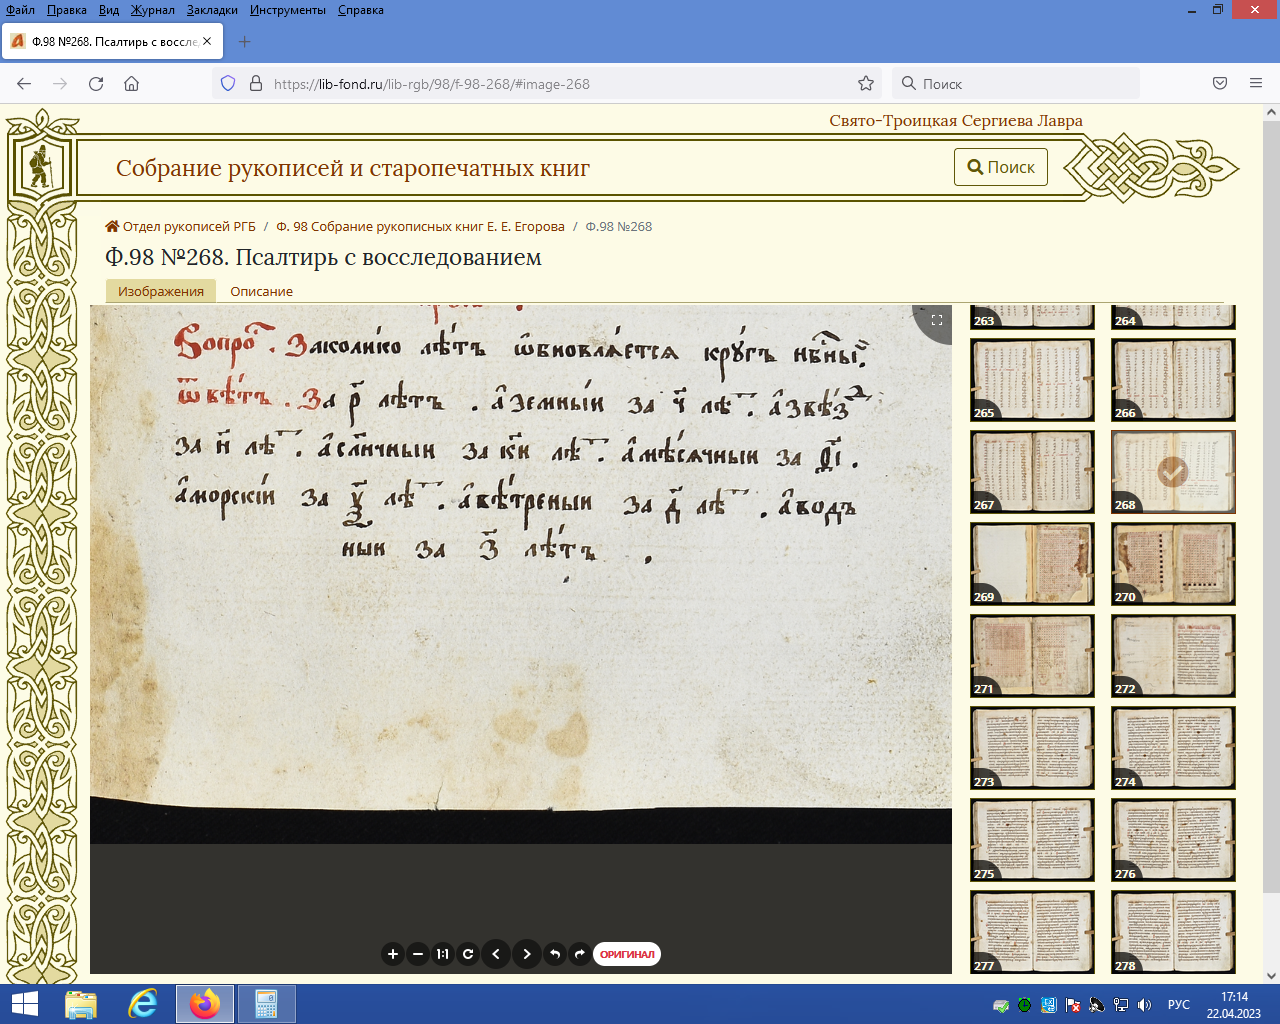 Файл Правка Вид Журнал Закладки Инструменты Справка
Ф.98 №268. Псалтирь с восслед
https://lib-fond.ru/lib-rgb/98/f-98-268/#image-268
Поиск
Свято-Троицкая Сергиева Лавра
Собрание рукописей и старопечатных книг
Поиск
Отдел рукописей РГБ / Ф. 98 Собрание рукописных книг Е. Е. Егорова / Ф.98 №268
Ф.98 №268. Псалтирь с восследованием
Изображения Описание
Вопро҇. Заколико лѣтъ ѡбновлѧетсѧ кругъ нб҃ныи҆.
ѿвѣтъ. За р҃ лѣтъ. аземныи за ч҃ лѣ҇. азвѣз
за н҃ лѣ҇. асл҃нчныи за к҃и лѣ҇. амѣсѧчныи за ѳ҃і.
аморскіи за ѯ҃ лѣ҇. авѣтреныи за д҃ лѣ҇. аводъ
ныи за з҃ лѣтъ.
1:1
ОРИГИНАЛ
263 264
265 266
267 268
269 270
271 272
273 274
275 276
277 278
РУС
17:14
22.04.2023